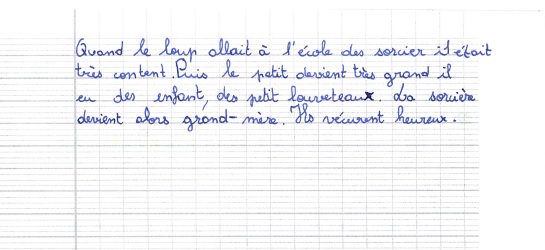 Quand le loup allait à l'école des sorcier il était
très content. Puis le petit devient très grand il
eu des enfant, des petit louveteaux. La sorcière
devient alors grand-mère. Ils vécurent heureux.